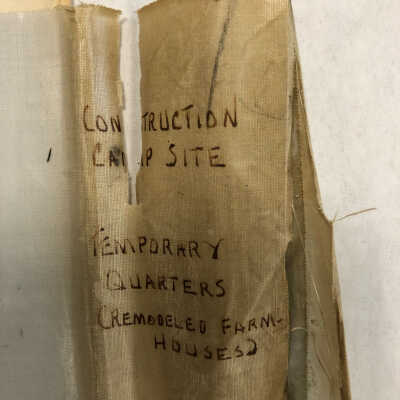 CONSTRUCTION
CAMP SITE
TEMPORARY
QUARTERS
(REMODELED FARM-
HOUSES)